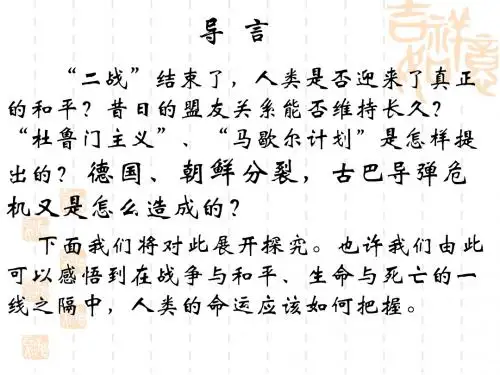 导 言
“二战”结束了，人类是否迎来了真正
的和平？昔日的盟友关系能否维持长久？
“杜鲁门主义”、“马歇尔计划”是怎样提
出的？德国、朝鲜分裂，古巴导弹危
机又是怎么造成的？
下面我们将对此展开探究。也许我们由此
可以感悟到在战争与和平、生命与死亡的一
线之隔中，人类的命运应该如何把握。
吉祥如意